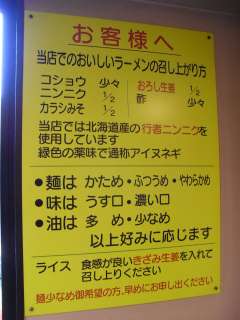 お客様へ
当店でのおいしいラーメンの召し上がり方
コショウ 少々 おろし生姜 1/2
ニンニク 1/2 酢 少々
カラシみそ 1/2
当店では北海道産の行者ニンニクを
使用しています
緑色の薬味で通称アイヌネギ
●麺は かため・ふつうめ・やわらかめ
●味は うす口・濃い口
●油は 多め・少なめ
以上好みに応じます
ライス 食感が良いきざみ生姜を入れて
召し上りください
麺少なめ御希望の方、早めにお申し出ください